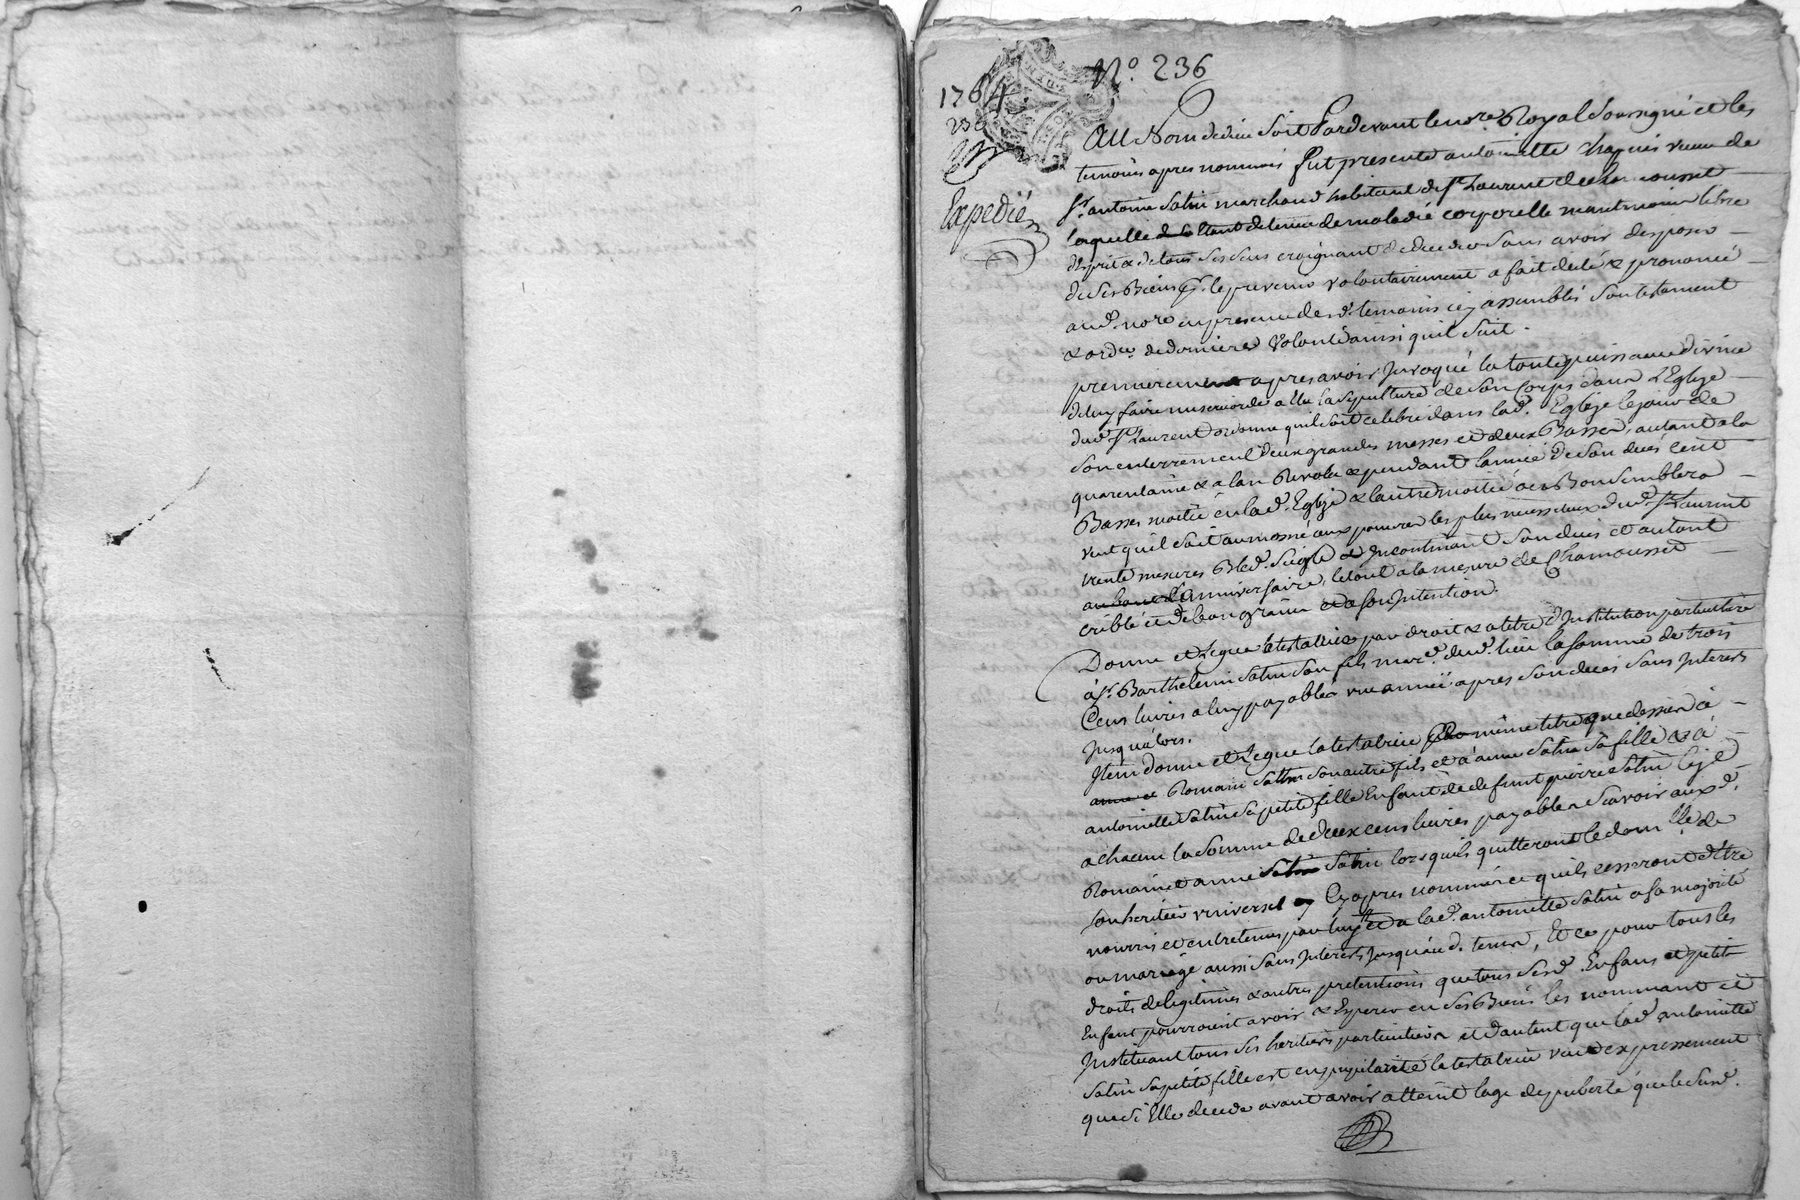 N.° 236
1764
236
Expedié
Au Nom de dieu soit Pardevant le no.re Royal soussigné et les
temoins apres nommés fut presente antoinette veuve de
S.r antoine Satin marchand habitant de S.t Laurent de chamousset
laquelle détenue de maladie corporelle maintmoins libre
d'esprit & de tous ses sens craignant de deceder sans avoir disposé
de ses Biens p.r le prevenir volontairement a fait dicté & prononcé
aud. no.re en presence des d. temoins icy assemblés son testament
& ord.ce de derniere volonté ainsi quil suit.
premierement apres avoir Invoqué la toute puissance divine
de luy faire misericorde a Elu la sepulture de son Corps dans l'Eglize
dud. S.t Laurent ordonne quil soit celebré dans lad. Eglize le jour de
son enterrement deux grandes messes et deux Basses, autant a la
quarantaine & a lan Revolu & pendant l'année de son deces cent
Basses moitié en lad. Eglize & lautre moitié ou Bon semblera
veut quil soit aumosné aux pauvres les plus necessiteux dud. S.t Laurent
trente mesures Bled Seigle Incontinant son deces et autant
au bout de l'anniversaire, le tout a la mesure de Chamousset
criblé et de bon grain et a son Intention.
Donne et Legue la testatrice par droit & a titre d'Institution particuliere
à S.r Barthelemi Satin son fils mar.d dud. lieu la somme de trois
Cens livres a luy payables une année apres son deces sans Interets
jusqu'alors.
Item donne et Legue la testatrice au même titre que dessus à
anne et Romain Satin son autre fils et à anne Satin sa fille & à
antoinette Satin sa petite fille Enfant de defunt pierre Satin
a chacun la somme de deux cens livres payables Scavoir auxd.
Romain et anne Satin Satin lorsquils quitteront le domicille de
son heritier universel cy apres nommé ce quils cesseront d'être
nourris et entretenus par luy et a lad. antoinette Satin a sa majorité
ou mariage aussi sans Interets jusqu'aud. tems, Et ce pour tous les
droits de legitimes & autres pretentions que tous sesd. Enfans et petite
Enfant pourroient avoir & Esperer en ses Biens les nommant et
Instituant tous ses heritiers particuliers et d'autant que lad. antoinette
Satin sa petite fille est en pupilarité la testatrice veut expressement
que si Elle decede avant avoir atteint l'age de puberté que le Susd.